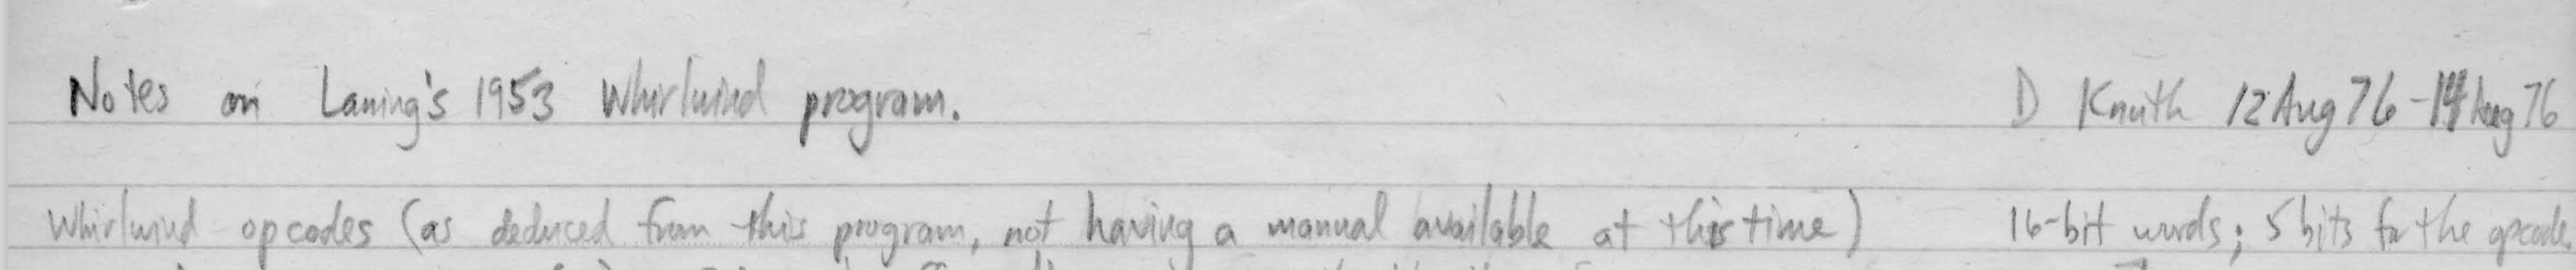 Notes on Laning's 1953 Whirlwind program. D Knuth 12 Aug 76 - 14 Aug 76
Whirlwind opcodes (as deduced from this program, not having a manual available at this time) 16-bit words; 5 bits for the opcode.